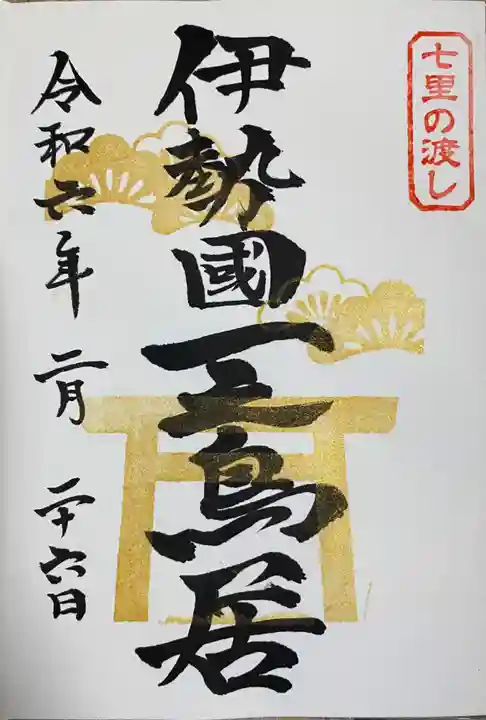 七里の渡し
伊勢國一之鳥居
令和六年 二月 二十六日